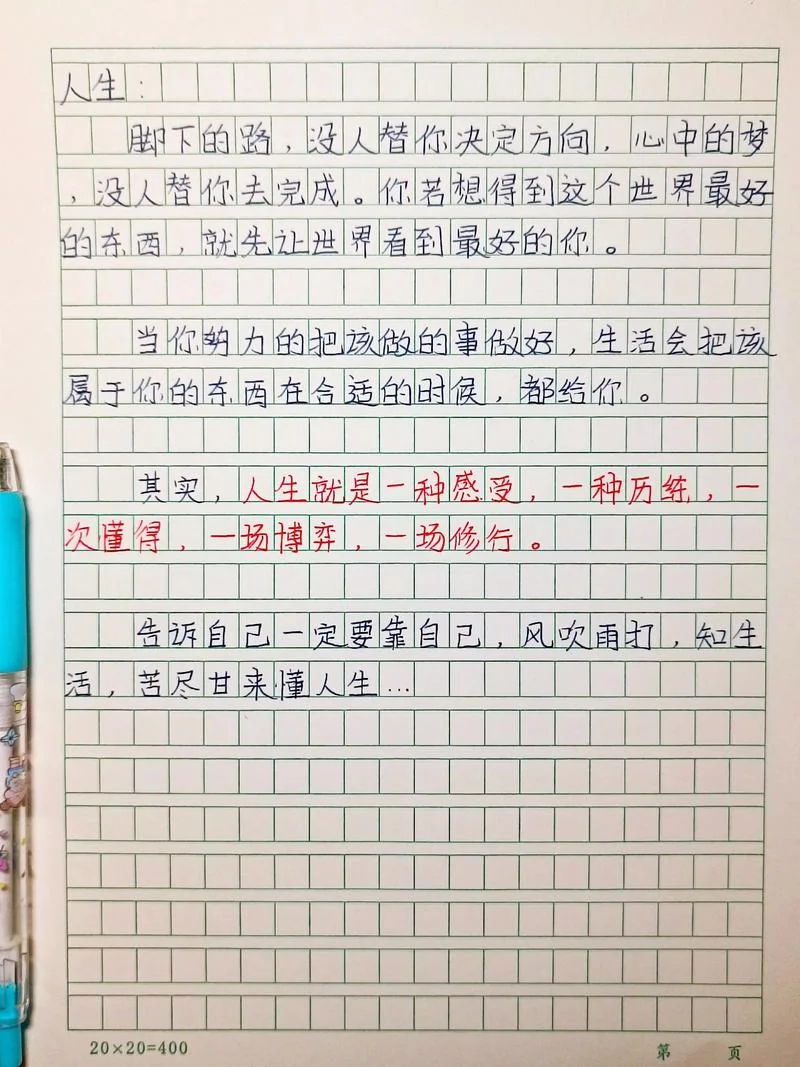 人生：
脚下的路，没人替你决定方向，心中的梦
，没人替你去完成。你若想得到这个世界最好
的东西，就先让世界看到最好的你。
当你努力的把该做的事做好，生活会把该
属于你的东西在合适的时候，都给你。
其实，人生就是一种感受，一种历练，一
次懂得，一场博弈，一场修行。
告诉自己一定要靠自己，风吹雨打，知生
活，苦尽甘来懂人生…
20×20=400 第 页